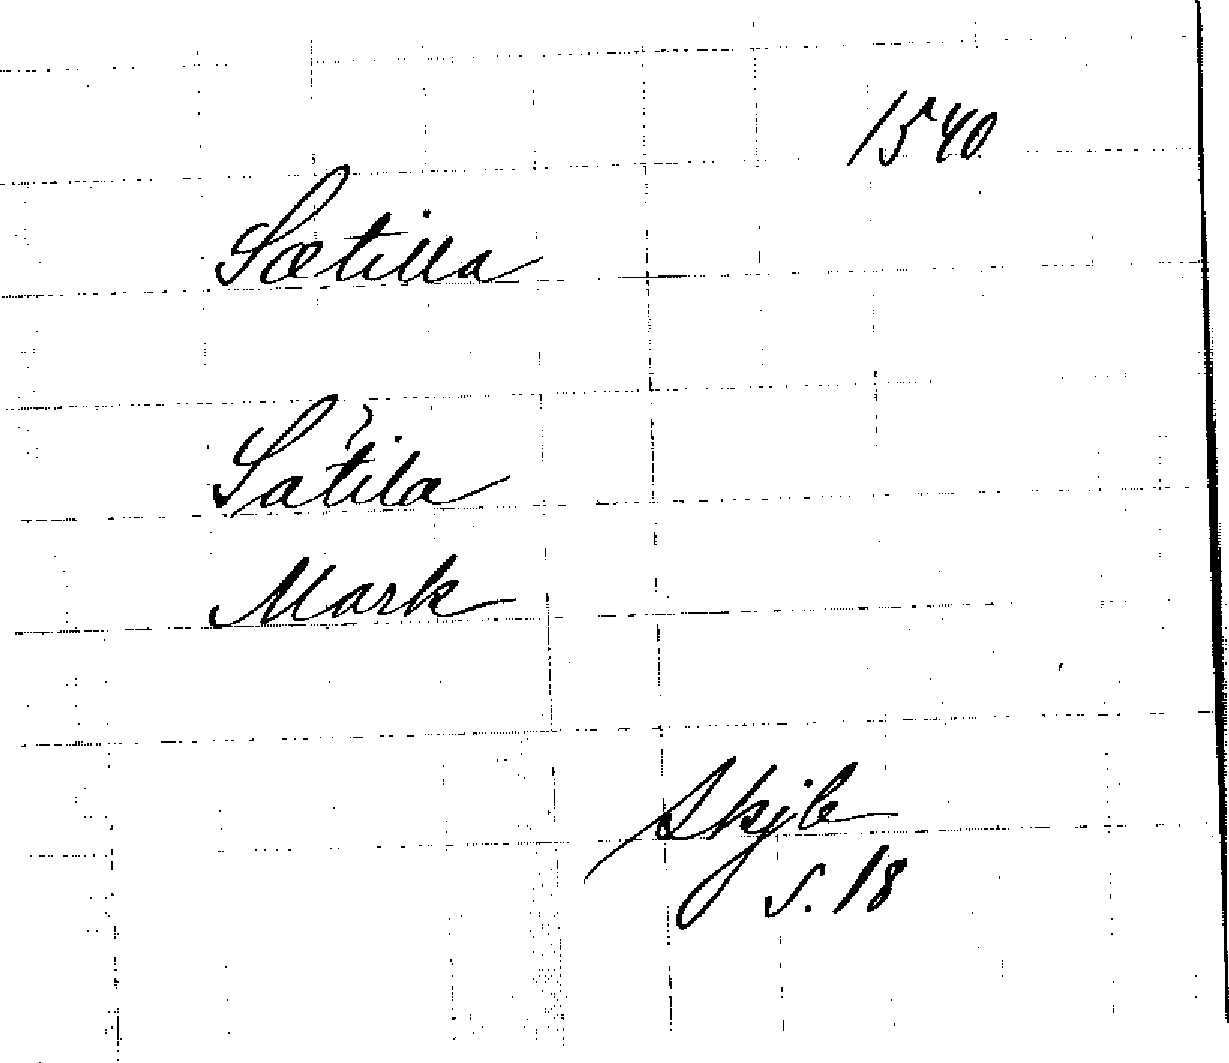 1540
Sætilla
Sätila
Mark
Skjb
s. 18